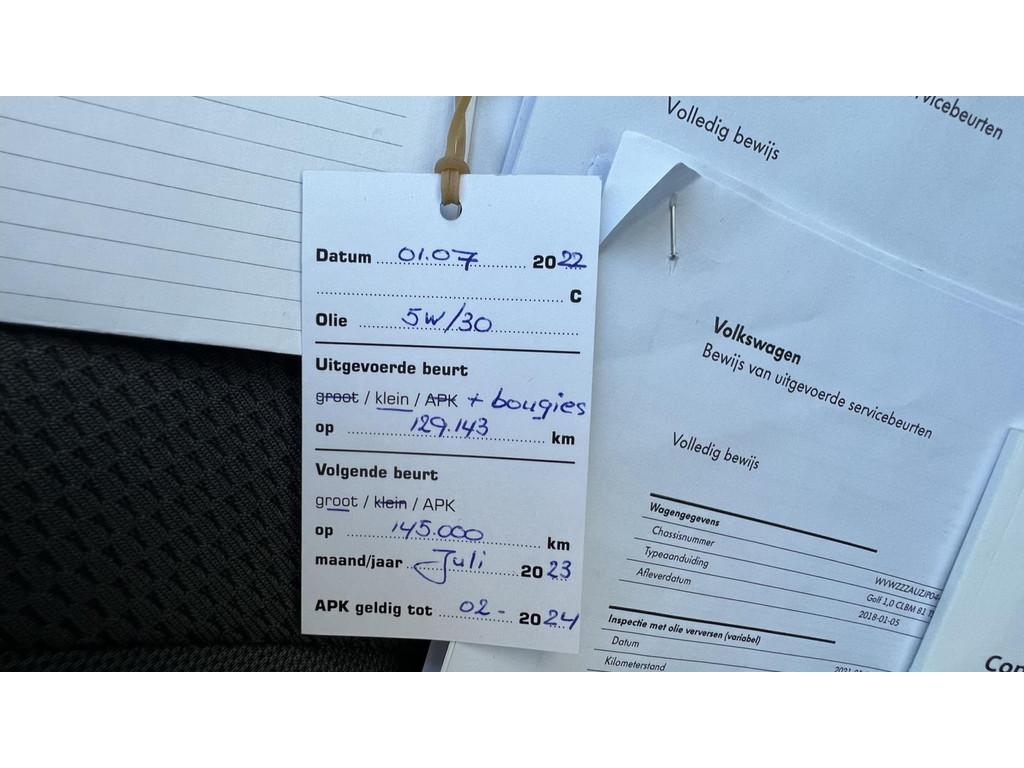 Datum 01.07 2022
C
Olie 5W/30
Uitgevoerde beurt
groot / klein / APK + bougies
op 129.143 km
Volgende beurt
groot / klein / APK
op 145.000 km
maand/jaar Juli 2023
APK geldig tot 02- 2024
Volledig bewijs
servicebeurten
Volkswagen
Bewijs van uitgevoerde servicebeurten
Volledig bewijs
Wagengegevens
Chassisnummer WVWZZZAUZJP04
Typeaanduiding Golf 1,0 CLBM 81
Afleverdatum 2018-01-05
Inspectie met olie verversen (variabel)
Datum
Kilometerstand